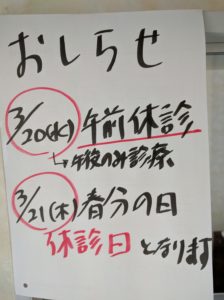 おしらせ
3/20(水)午前休診
↳午後のみ診療
3/21(木)春分の日
休診日となります